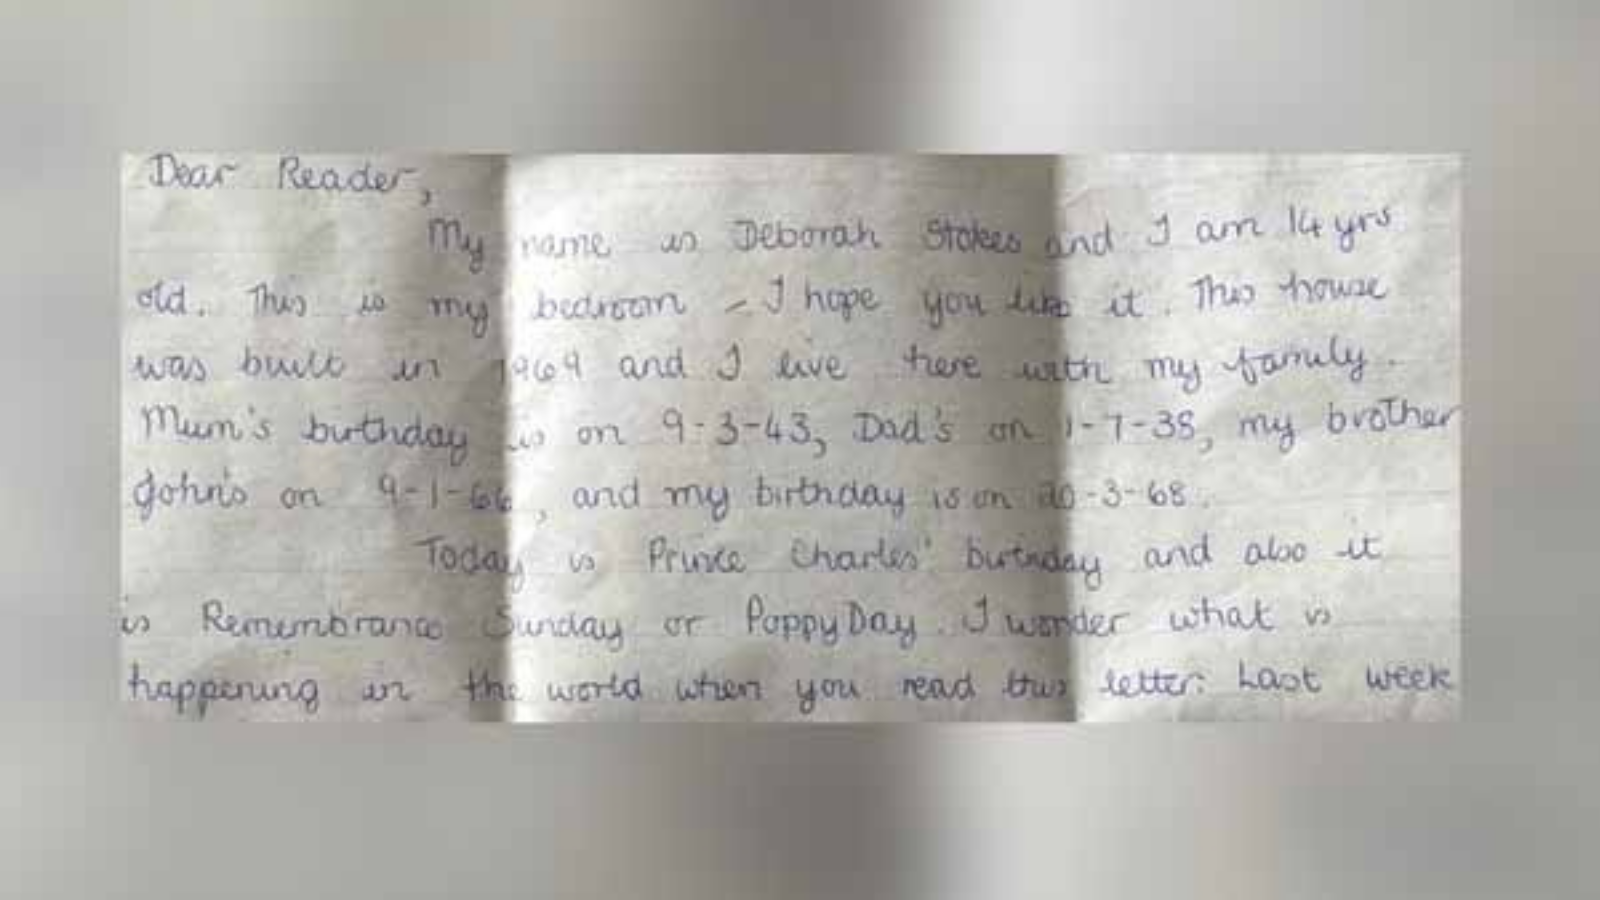 Dear Reader,
My name is Deborah Stokes and I am 14 yrs
old. This is my bedroom - I hope you like it. This house
was built in 1969 and I live here with my family.
Mum's birthday is on 9-3-43, Dad's on 1-7-38, my brother
John's on 9-1-66, and my birthday is on 20-3-68.
Today is Prince Charles' birthday and also it
is Remembrance Sunday or Poppy Day. I wonder what is
happening in the world when you read this letter. Last week